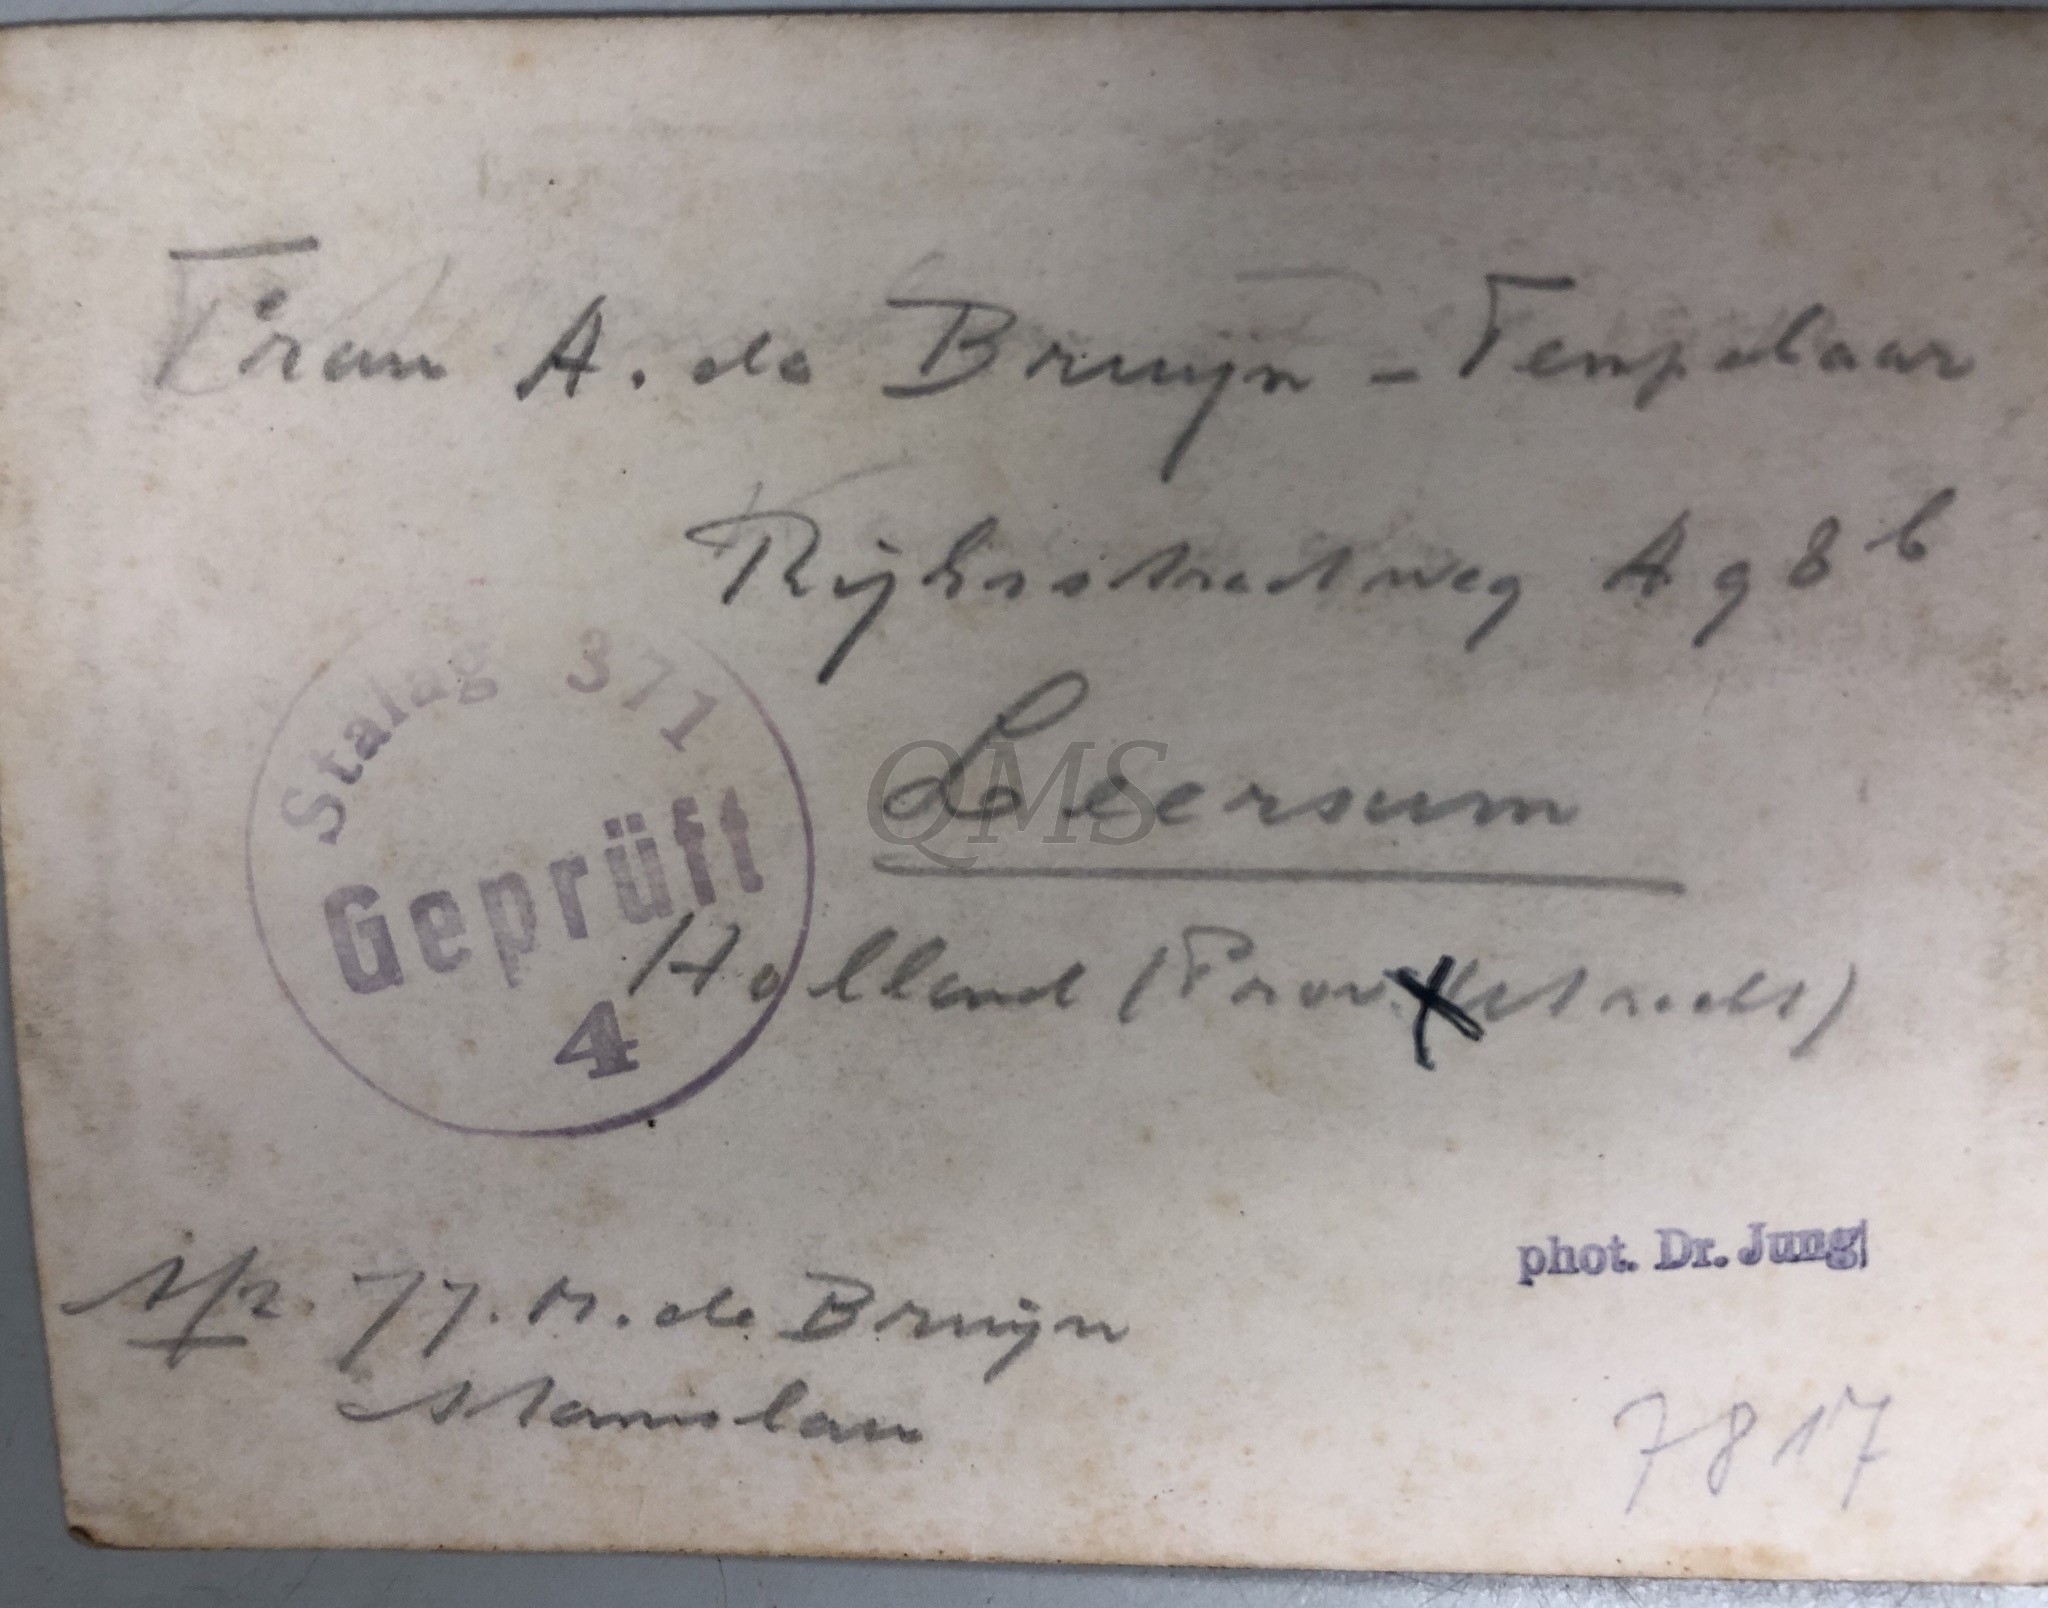 Frau A. de Bruijn - Tempelaar
Rijksstraatweg A 98 b
Leersum
Holland (Prov. Utrecht)
Stalag 371
Geprüft
4
QMS
phot. Dr. Jung
de Bruijn
Stanislau
7817